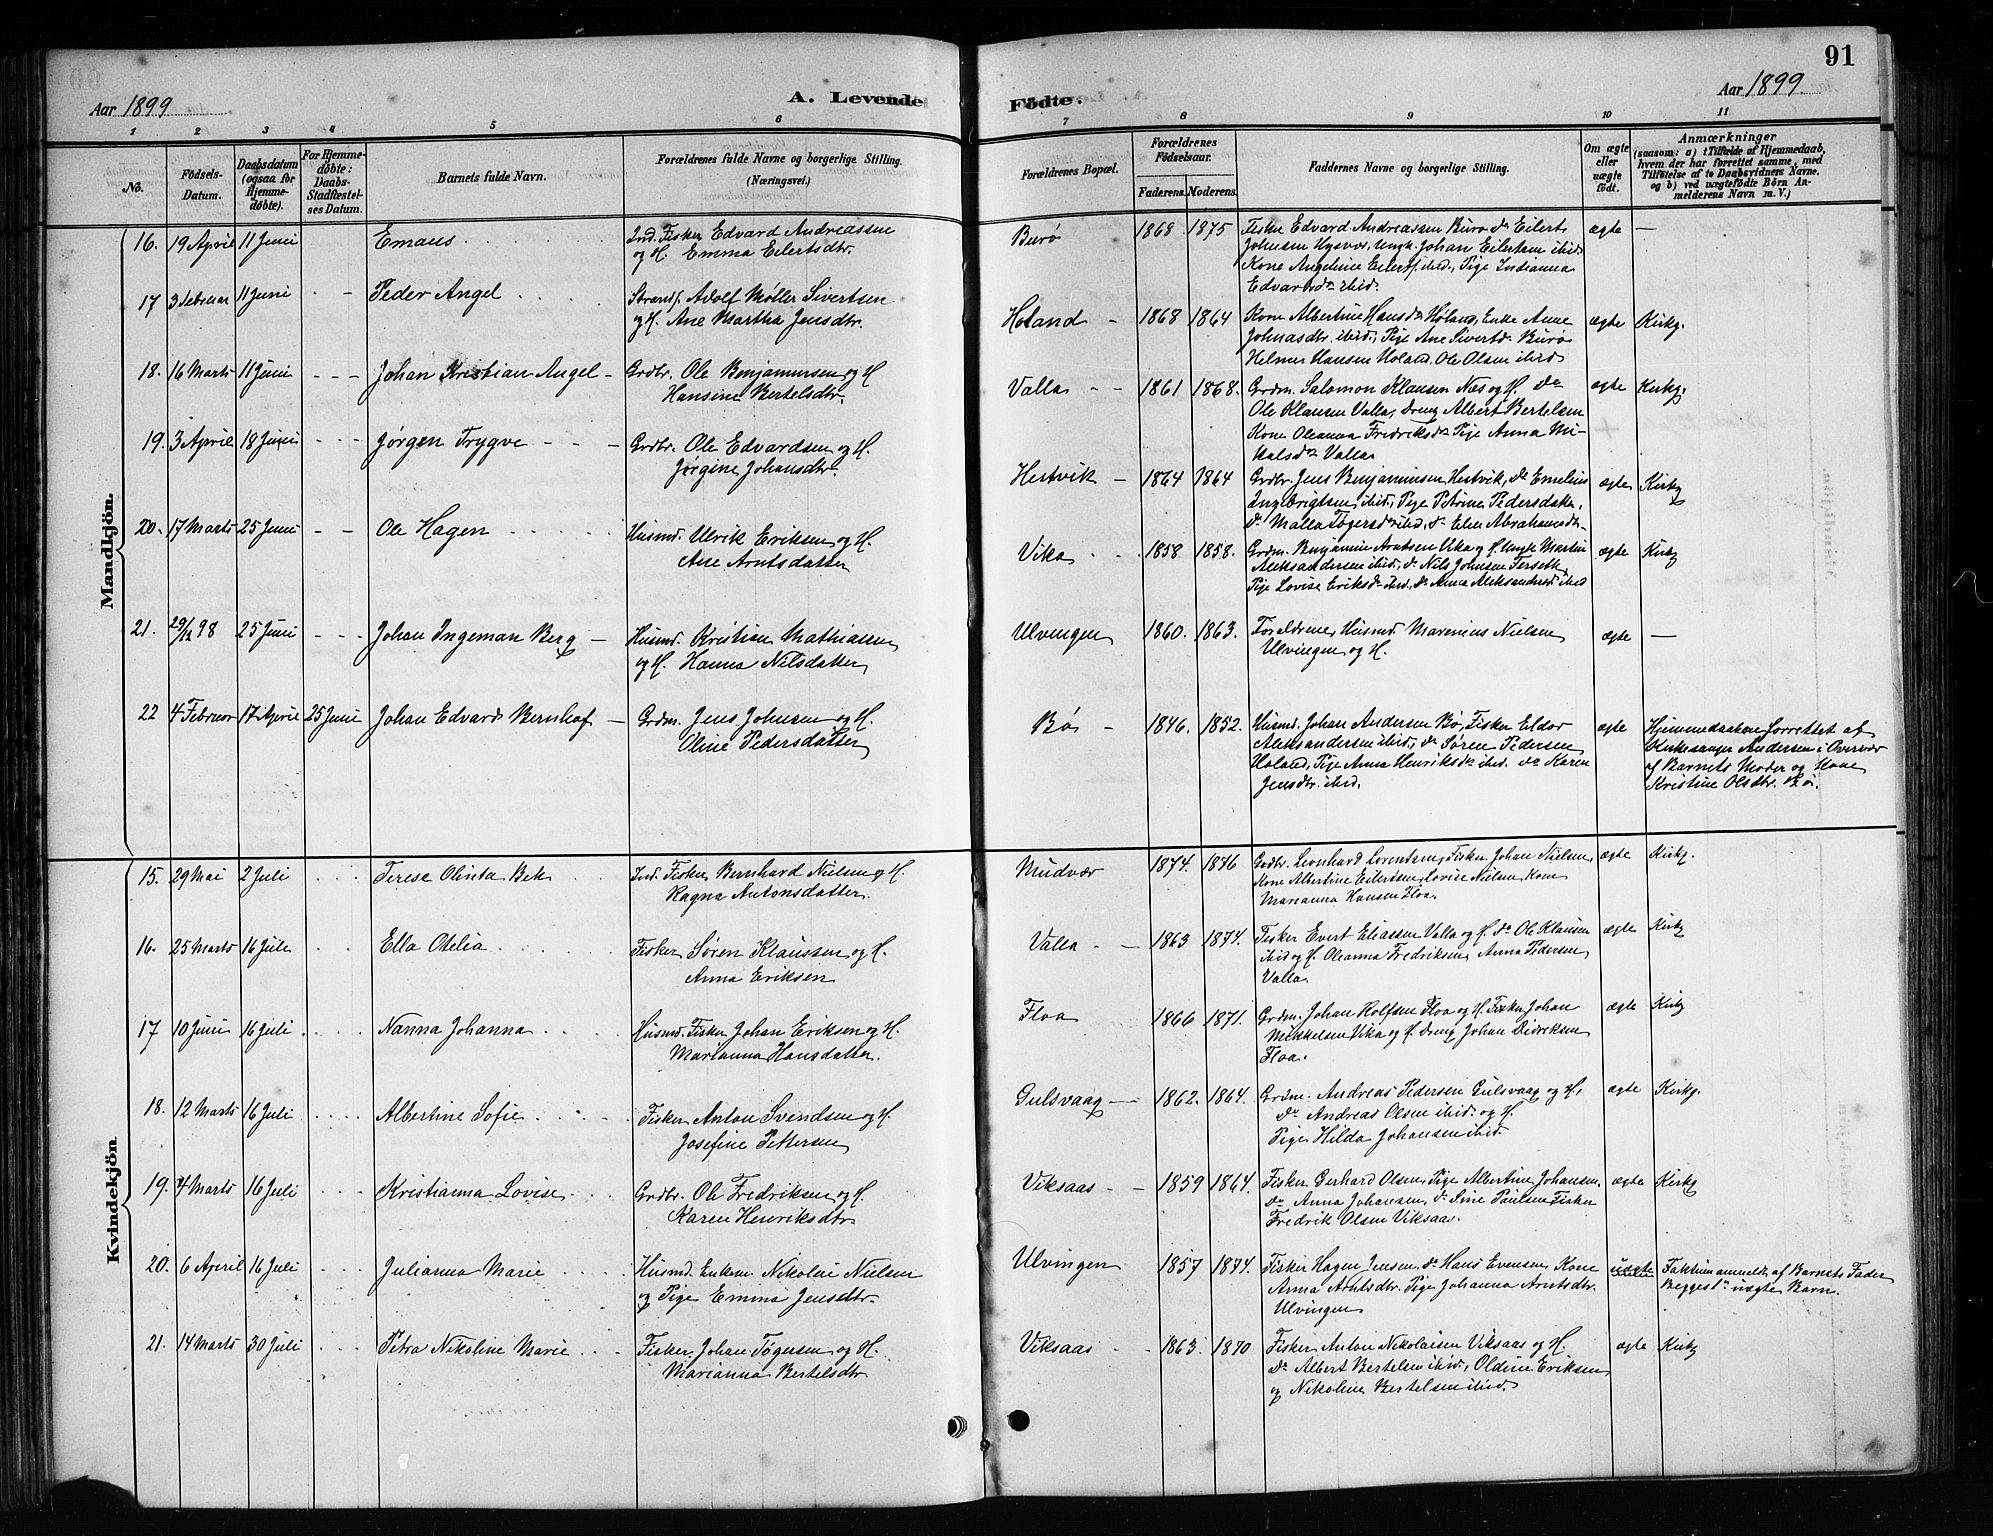 91
Aar 1899
A. Levende Födte.
Aar 1899.
1 2 3 4 5 6 7 8 9 10 11
No.
Födsels-Datum.
Daabsdatum (ogsaa for Hjemme-döbte).
For Hjemme-döbte: Daabs-Stadfæstel-ses Datum.
Barnets fulde Navn.
Forældrenes fulde Navne og borgerlige Stilling. (Næringsvei.)
Forældrenes Bopæl.
Forældrenes Födselsaar.
Faderens. Moderens.
Faddernes Navne og borgerlige Stilling.
Om ægte eller uægte födt.
Anmærkninger
(saasom: a) i Tilfælde af Hjemmedaab,
hvem der har forrettet samme, med
Tilföielse af to Daabsvidners Navne.
og b) ved uægtefödte Börn An-
melderens Navn m. V.)
Mandkjön.
16. 19 April 11 Juni Emaus Ind. Fisker Edvard Andreassen
og H. Emma Eilertsdtr.
Burø 1868 1875 Fisker Edvard Andreassen Burø, do Eilert
Johnsen, Ungk. Johan Eilertsen ibid.
Kone Angeline Eilertsd. ibid., Pige Indianna
Edvardsdr ibid.
ægte —
17 3 Februar 11 Juni Peder Angel Strands. Adolf Møller Sivertsen
og H. Ane Martha Jensdtr.
Holand 1868 1864 Kone Albertine Hansdr Holand, Enke Anne
Johnasdtr. ibid., Pige Ane Sivertsd. Burø
Helmer Hansen Holand, Ole Olsen ibid
ægte Kirkg.
18. 16 Marts 11 Juni Johan Kristian Angel Grdbr. Ole Benjaminsen og H
Hansine Bertelsdtr.
Valla 1861 1868. Grdm. Salomon Klausen Næs og H. do
Ole Klausen Valla, Dreng Albert Bertelsen
Kone Oleanna Fredriksdr Pige Anna Mi-
kalsdr Valla
ægte Kirkg.
19. 3 April 18 Juni Jørgen Trygve Grdbr. Ole Edvardsen og H.
Jørgine Johansdtr.
Hestvik 1864 1864 Grdbr. Jens Benjaminsen Hestvik, do Emelius
Ingebrigtsen, ibid, Pige Petrine Pedersdatter,
do Malla Tøgersdr ibid, do Elen Abrahamsdr
ægte Kirkg
20. 17 Marts 25 Juni Ole Hagen Husmd. Ulrik Eriksen og H.
Ane Arntsdatter
Vika 1858 1858. Grdm. Benjamin Arntsen Vika og H. Ungk Martin
Aleksandersen ibid, do Nils Johnsen Forseth
Pige Lovise Eriksdr ibid, do Anna Aleksandersd ibid
ægte Kirkg
21. 29/12 98 25 Juni Johan Ingeman Berg Husmd. Kristian Mathiassen
og H. Hanna Nilsdatter
Ulvingen 1860. 1863. Forældrene, Husmd Marenius Nielsen
Ulvingen og H.
ægte —
22 4 Februar 17 April 25 Juni Johan Edvard Bernhof Grdm. Jens Johnsen og H.
Oline Pedersdatter
Bø 1846. 1852. Husmd. Johan Andersen Bø, Fisker Eldor
Aleksandersen ibid, do Søren Pedersen
Holand, Pige Anna Henriksdr ibid. do Karen
Jensdtr. ibid.
ægte Hjemmedaaben forrettet af
Kirkesanger Andersen i Overvær
af Barnets Moder og Kone
Kristine Olsdtr. Bø.
Kvindekjön
15. 29 Mai 2 Juli Terese Olivia Bek Ind. Fisker Bernhard Nielsen og H.
Ragna Antonsdatter.
Mudvær 1874. 1876 Grdbr. Leonhard Lorentsen, Fisker Johan Nielsen,
Kone Albertine Eilertsen, Lovise Nielsen, Kone
Marianna Hansen Floa.
ægte Kirkg.
16. 25 Marts 16 Juli Ella Otelia Fisker Søren Klaussen og H.
Anna Eriksen
Valla 1863 1874. Fisker Evert Eliassen Valla og H. do Ole Klausen
ibid og H. Oleanna Fredriksen, Anna Pedersen
Valla.
ægte Kirkg
17 10 Juni 16 Juli Nanna Johanna Husmd. Fisker Johan Eriksen og H.
Marianna Hansdatter.
Floa 1866 1871. Grdm. Johan Rolfsen Floa og H. Fisker Johan
Mikkelsen Vika og H. Dreng Johan Didriksen
Floa.
ægte Kirkg
18. 12 Marts 16 Juli Albertine Sofie Fisker Anton Svendsen og H.
Josefine Pettersen
Gulsvaag 1862. 1864. Grdm. Andreas Pedersen Gulsvaag og H.
do Andreas Olsen ibid. og H
Pige Hilda Johansen ibid.
ægte Kirkg.
19. 4 Marts 16 Juli Kristianna Lovise Grdbr. Ole Fredriksen og H.
Karen Henriksdtr
Viksaas 1859 1864. Fisker Gerhard Olsen, Pige Albertine Johansen.
do Anna Johansen, do Sine Paulsen, Fisker
Fredrik Olsen Viksaas.
ægte Kirkg
20. 6 April 16 Juli Julianna Marie Husmd. Enkem. Nikolai Nielsen
og Pige Emma Jensdtr.
Ulvingen 1857 1874. Fisker Hagen Jensen, do Hans Evensen, Kone
Anna Arntsdtr. Pige Johanna Arntsdtr.
Ulvingen
uægte Faktum anmeldt af Barnets Fader
Begges 1ste uægte Barn.
21. 14 Marts 30 Juli Petra Nikoline Marie Fisker Johan Tøgersen og H.
Marianna Bertelsdtr
Viksaas 1863. 1870 Fisker Anton Nikolaisen Viksaas og H.
do Albert Bertelsen ibid., Oldine Eriksen
og Nikoline Bertelsen ibid.
ægte Kirkg